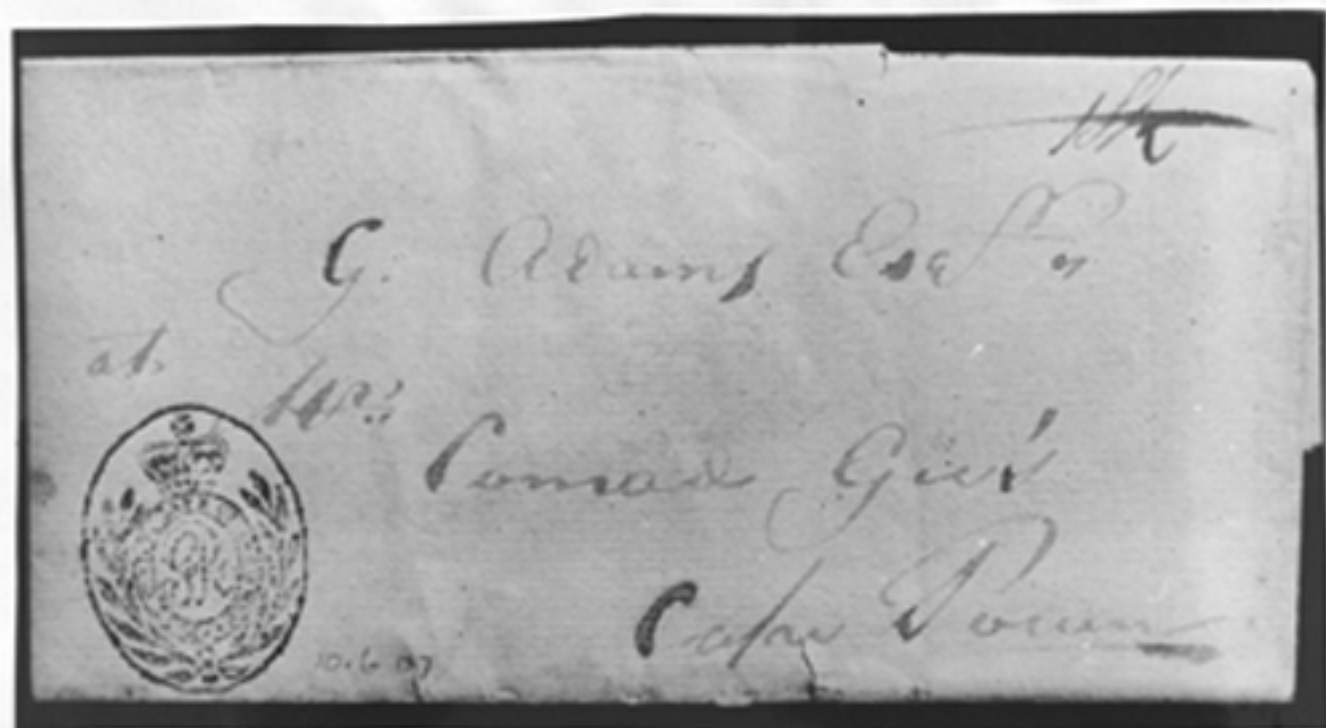 G. Adams Esqr
at
Mrs
Conrad Gie's
Cape Town
10.6.07